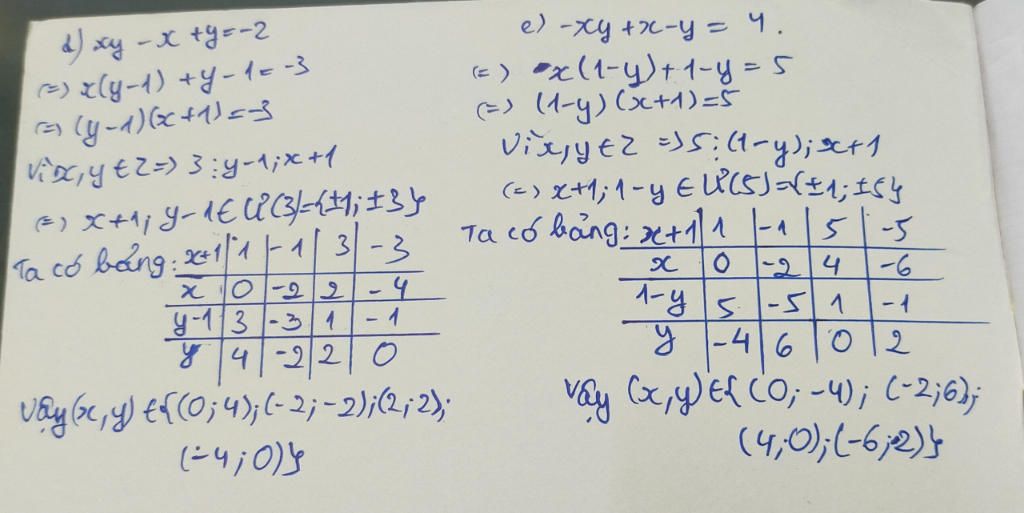 d) xy - x + y = -2
(=) x(y-1) + y - 1 = -3
(=) (y-1)(x+1) = -3
Vì x, y ∈ Z => 3 ⋮ y-1; x+1
(=) x+1; y-1 ∈ Ư(3)={±1; ±3}
Ta có bảng: x+1 | 1 | -1 | 3 | -3
x | 0 | -2 | 2 | -4
y-1 | 3 | -3 | 1 | -1
y | 4 | -2 | 2 | 0
Vậy (x, y) ∈ {(0; 4); (-2; -2); (2; 2);
(-4; 0)}
e) -xy + x - y = 4.
(=) x(1-y) + 1 - y = 5
(=) (1-y)(x+1) = 5
Vì x, y ∈ Z => 5 ⋮ (1-y); x+1
(=) x+1; 1-y ∈ Ư(5)={±1; ±5}
Ta có bảng: x+1 | 1 | -1 | 5 | -5
x | 0 | -2 | 4 | -6
1-y | 5 | -5 | 1 | -1
y | -4 | 6 | 0 | 2
Vậy (x, y) ∈ {(0; -4); (-2; 6);
(4; 0); (-6; 2)}